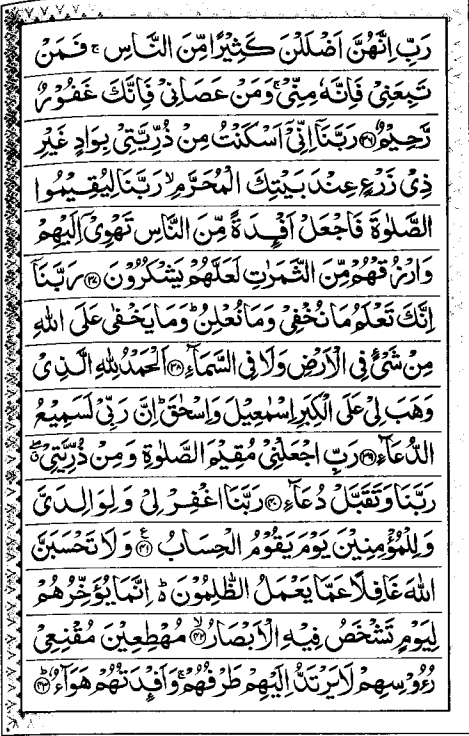 رَبِّ اِنَّهُنَّ اَضْلَلْنَ كَثِيْرًا مِّنَ النَّاسِ ۚ فَمَنْ
تَبِعَنِيْ فَاِنَّهٗ مِنِّيْ ۚ وَمَنْ عَصَانِيْ فَاِنَّكَ غَفُوْرٌ
رَّحِيْمٌ ﴿۳۶﴾ رَبَّنَآ اِنِّيْٓ اَسْكَنْتُ مِنْ ذُرِّيَّتِيْ بِوَادٍ غَيْرِ
ذِيْ زَرْعٍ عِنْدَ بَيْتِكَ الْمُحَرَّمِ ۙ رَبَّنَا لِيُقِيْمُوا
الصَّلٰوةَ فَاجْعَلْ اَفْـِٕدَةً مِّنَ النَّاسِ تَهْوِيْٓ اِلَيْهِمْ
وَارْزُقْهُمْ مِّنَ الثَّمَرٰتِ لَعَلَّهُمْ يَشْكُرُوْنَ ﴿۳۷﴾ رَبَّنَآ
اِنَّكَ تَعْلَمُ مَا نُخْفِيْ وَمَا نُعْلِنُ ؕ وَمَا يَخْفٰى عَلَى اللّٰهِ
مِنْ شَيْءٍ فِي الْاَرْضِ وَلَا فِي السَّمَآءِ ﴿۳۸﴾ اَلْحَمْدُ لِلّٰهِ الَّذِيْ
وَهَبَ لِيْ عَلَى الْكِبَرِ اِسْمٰعِيْلَ وَاِسْحٰقَ ؕ اِنَّ رَبِّيْ لَسَمِيْعُ
الدُّعَآءِ ﴿۳۹﴾ رَبِّ اجْعَلْنِيْ مُقِيْمَ الصَّلٰوةِ وَمِنْ ذُرِّيَّتِيْ ۖۗ
رَبَّنَا وَتَقَبَّلْ دُعَآءِ ﴿۴۰﴾ رَبَّنَا اغْفِرْ لِيْ وَلِوَالِدَيَّ
وَلِلْمُؤْمِنِيْنَ يَوْمَ يَقُوْمُ الْحِسَابُ ﴿۴۱﴾ وَلَا تَحْسَبَنَّ
اللّٰهَ غَافِلًا عَمَّا يَعْمَلُ الظّٰلِمُوْنَ ؕ اِنَّمَا يُؤَخِّرُهُمْ
لِيَوْمٍ تَشْخَصُ فِيْهِ الْاَبْصَارُ ﴿۴۲﴾ مُهْطِعِيْنَ مُقْنِعِيْ
رُءُوْسِهِمْ لَا يَرْتَدُّ اِلَيْهِمْ طَرْفُهُمْ ۚ وَاَفْـِٕدَتُهُمْ هَوَآءٌ ﴿۴۳﴾